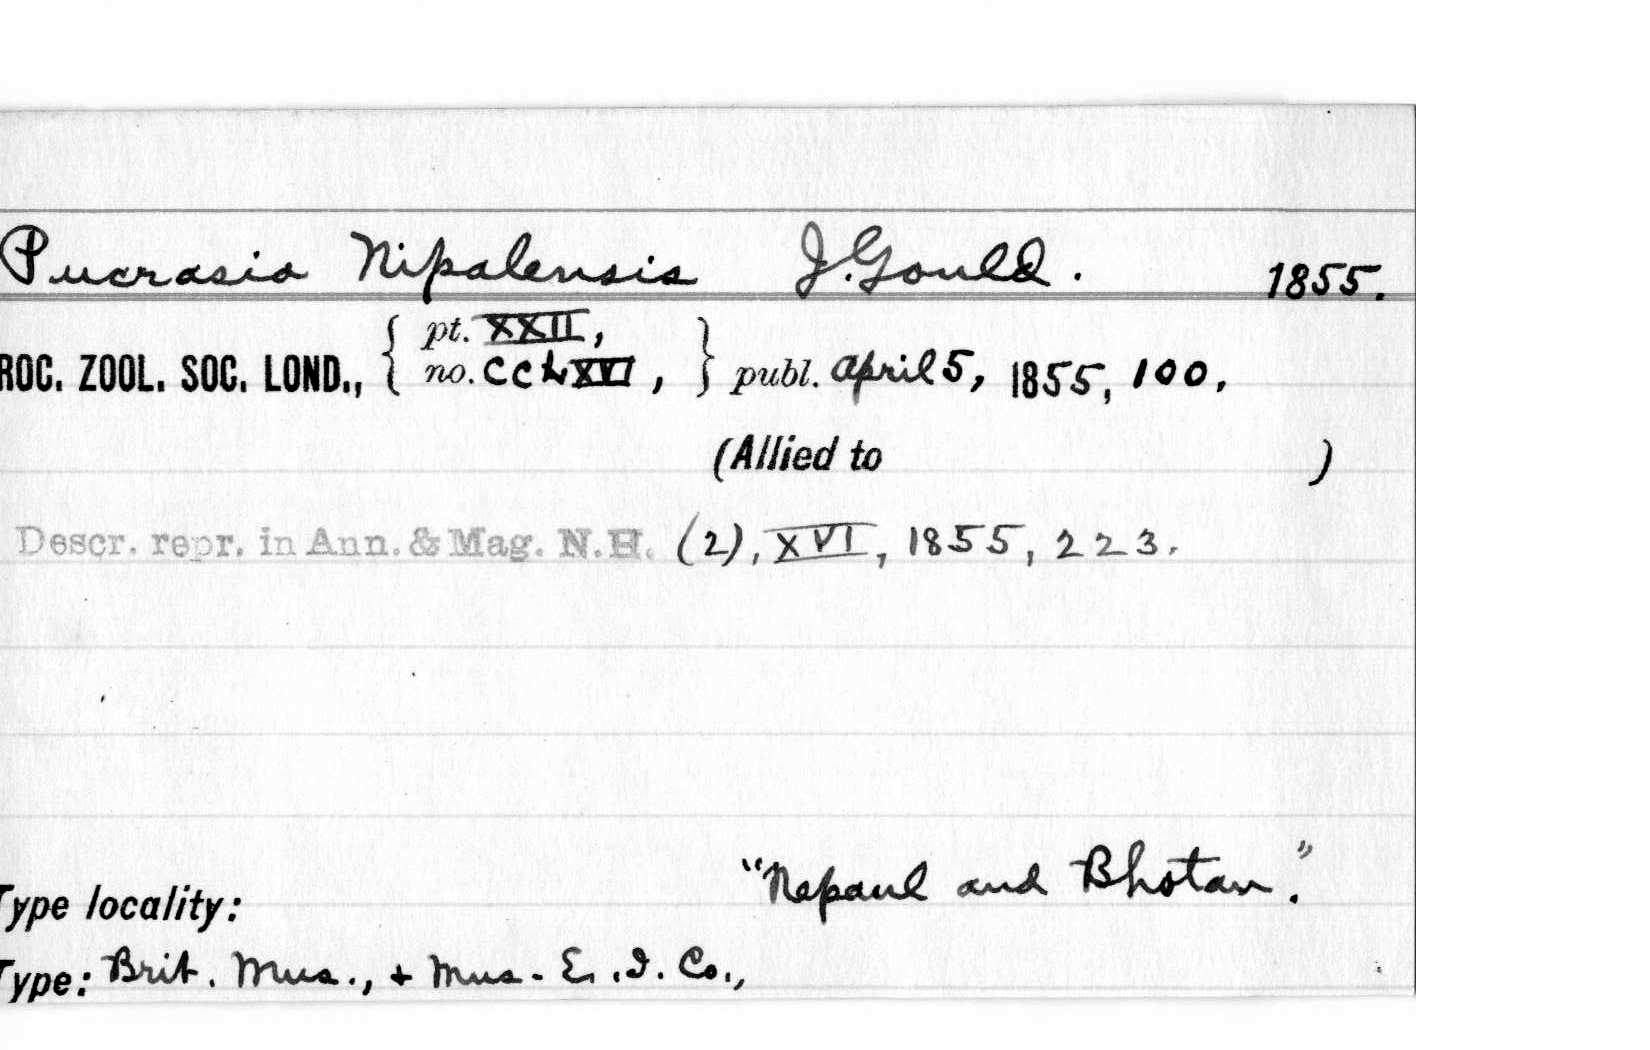 Pucrasia Nipalensis J. Gould. 1855.
ROC. ZOOL. SOC. LOND., { pt. XXII, no. CCLXVI, } publ. April 5, 1855, 100.
(Allied to )
Descr. repr. in Ann. & Mag. N.H. (2), XVI, 1855, 223.
"Nepaul and Bhotan."
Type locality:
Type: Brit. Mus., + Mus. E. I. Co.,